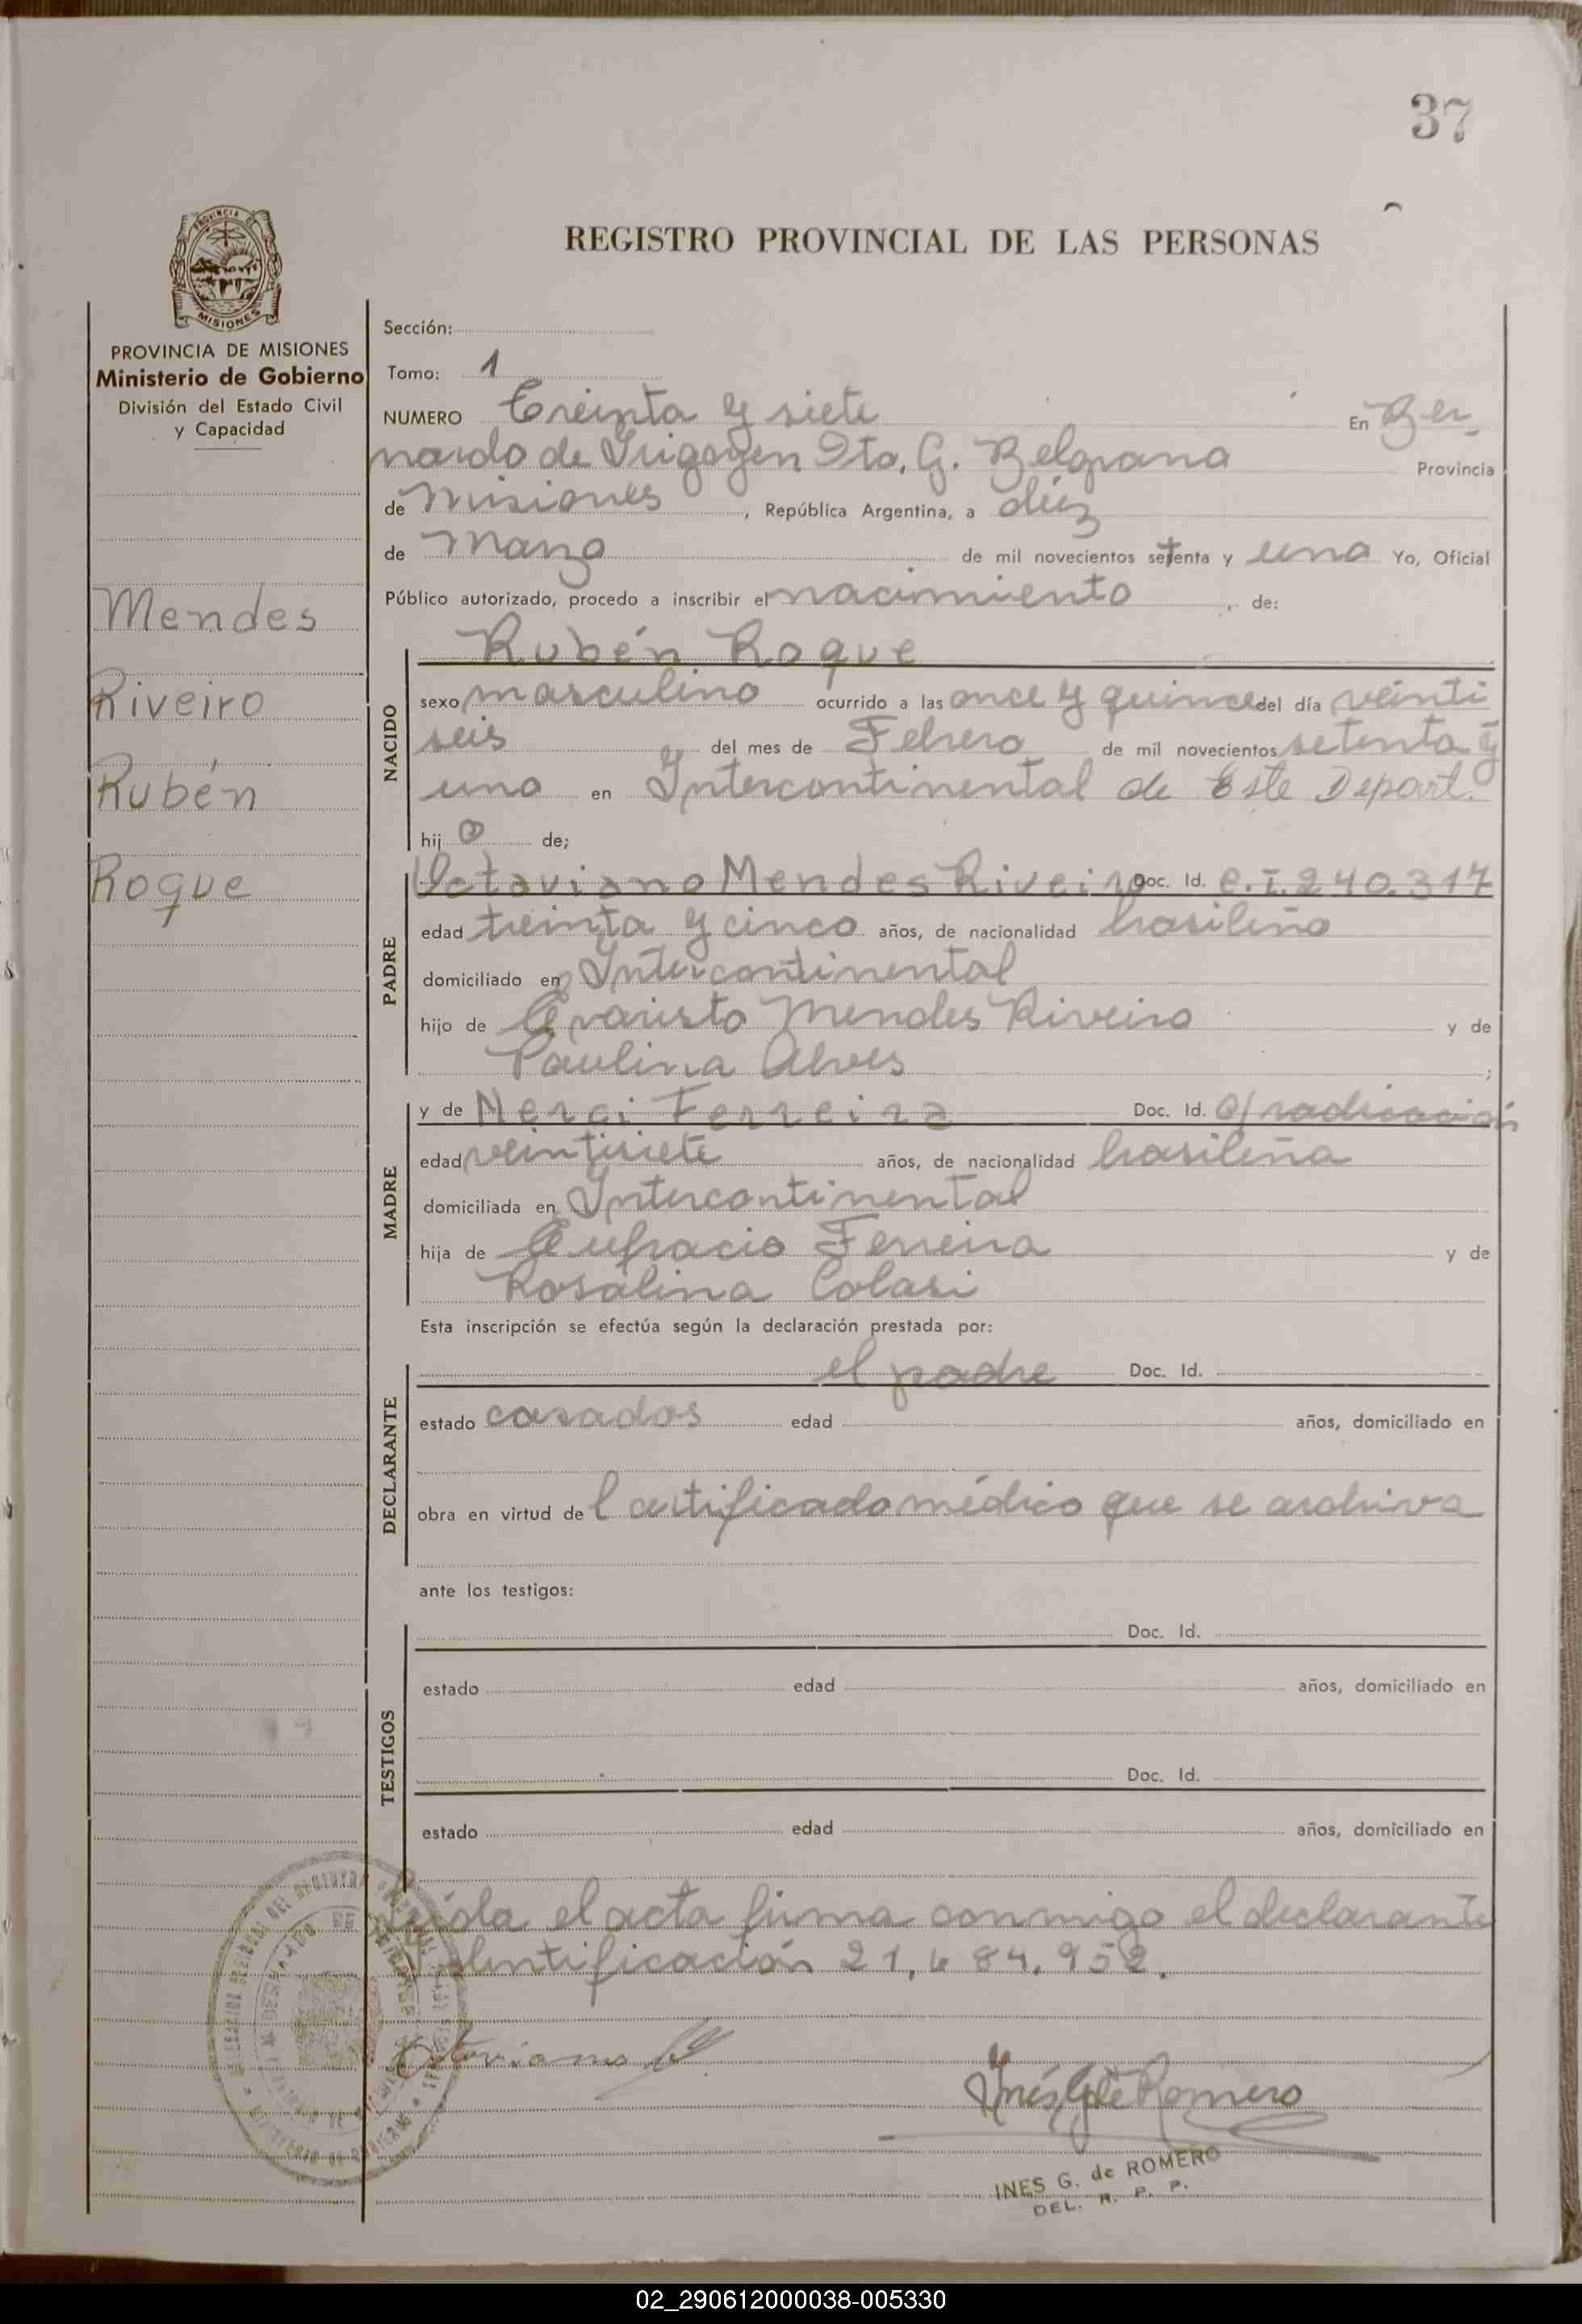 37
REGISTRO PROVINCIAL DE LAS PERSONAS
PROVINCIA DE MISIONES
PROVINCIA DE MISIONES
Ministerio de Gobierno
División del Estado Civil
y Capacidad
Mendes
Riveiro
Rubén
Roque
Sección:
Tomo: 1
NUMERO Treinta y siete En Ber
nardo de Irigoyen Dto. G. Belgrano Provincia
de Misiones, República Argentina, a diéz
de Marzo de mil novecientos setenta y uno Yo, Oficial
Público autorizado, procedo a inscribir el nacimiento, de:
Rubén Roque
NACIDO
sexo masculino ocurrido a las once y quince del día veinti
seis del mes de Febrero de mil novecientos setenta y
uno en Intercontinental de Este Depart.
hijo de;
PADRE
Octaviano Mendes Riveiro Doc. Id. C.I. 240.317
edad treinta y cinco años, de nacionalidad brasileño
domiciliado en Intercontinental
hijo de Evaristo Mendes Riveiro y de
Paulina Alves;
MADRE
y de Nerci Ferreira Doc. Id. C/ radicación
edad veintisiete años, de nacionalidad brasileña
domiciliada en Intercontinental
hija de Eufracio Ferreira y de
Rosalina Colasi
Esta inscripción se efectúa según la declaración prestada por:
DECLARANTE
el padre Doc. Id.
estado casados edad años, domiciliado en
obra en virtud del certificado médico que se archiva
ante los testigos:
TESTIGOS
Doc. Id.
estado edad años, domiciliado en
Doc. Id.
estado edad años, domiciliado en
Leída el acta firma conmigo el declarante
Identificación 21.684.952.
Octaviano
Inés G. de Romero
INES G. de ROMERO
DEL. R. P. P.
02_290612000038-005330